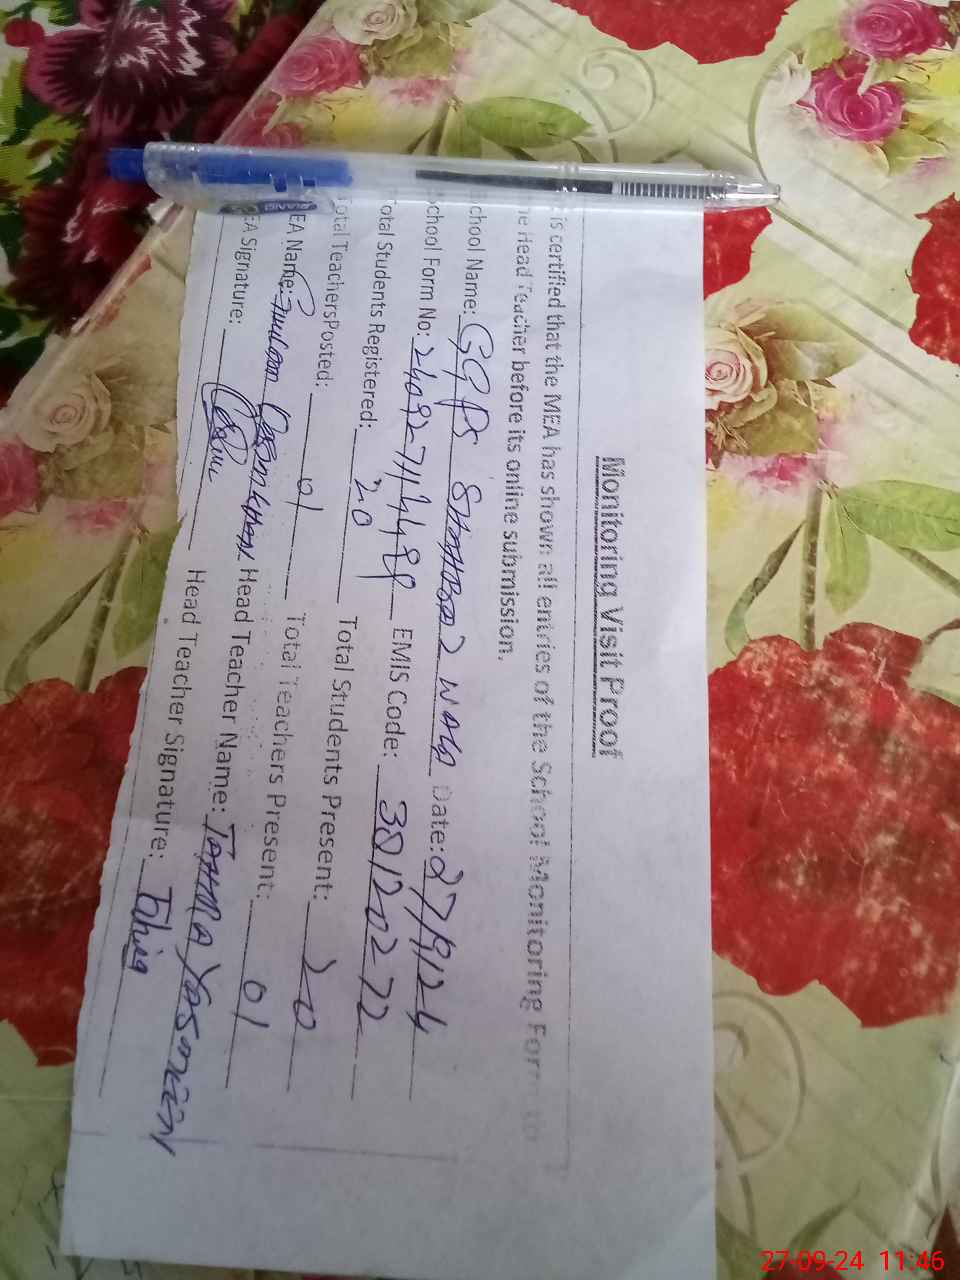 Monitoring Visit Proof
is certified that the MEA has shown all entries of the School Monitoring Form to
he Head Teacher before its online submission.
chool Name: GGPS WALA Date: 27/9/24
chool Form No: EMIS Code: 38120272
otal Students Registered: 20 Total Students Present: 20
otal TeachersPosted: 01 Total Teachers Present: 01
EA Name: KHAN Head Teacher Name: TAHIRA YASMEEN
EA Signature: Head Teacher Signature: Tahira
PIANO
27-09-24 11:46